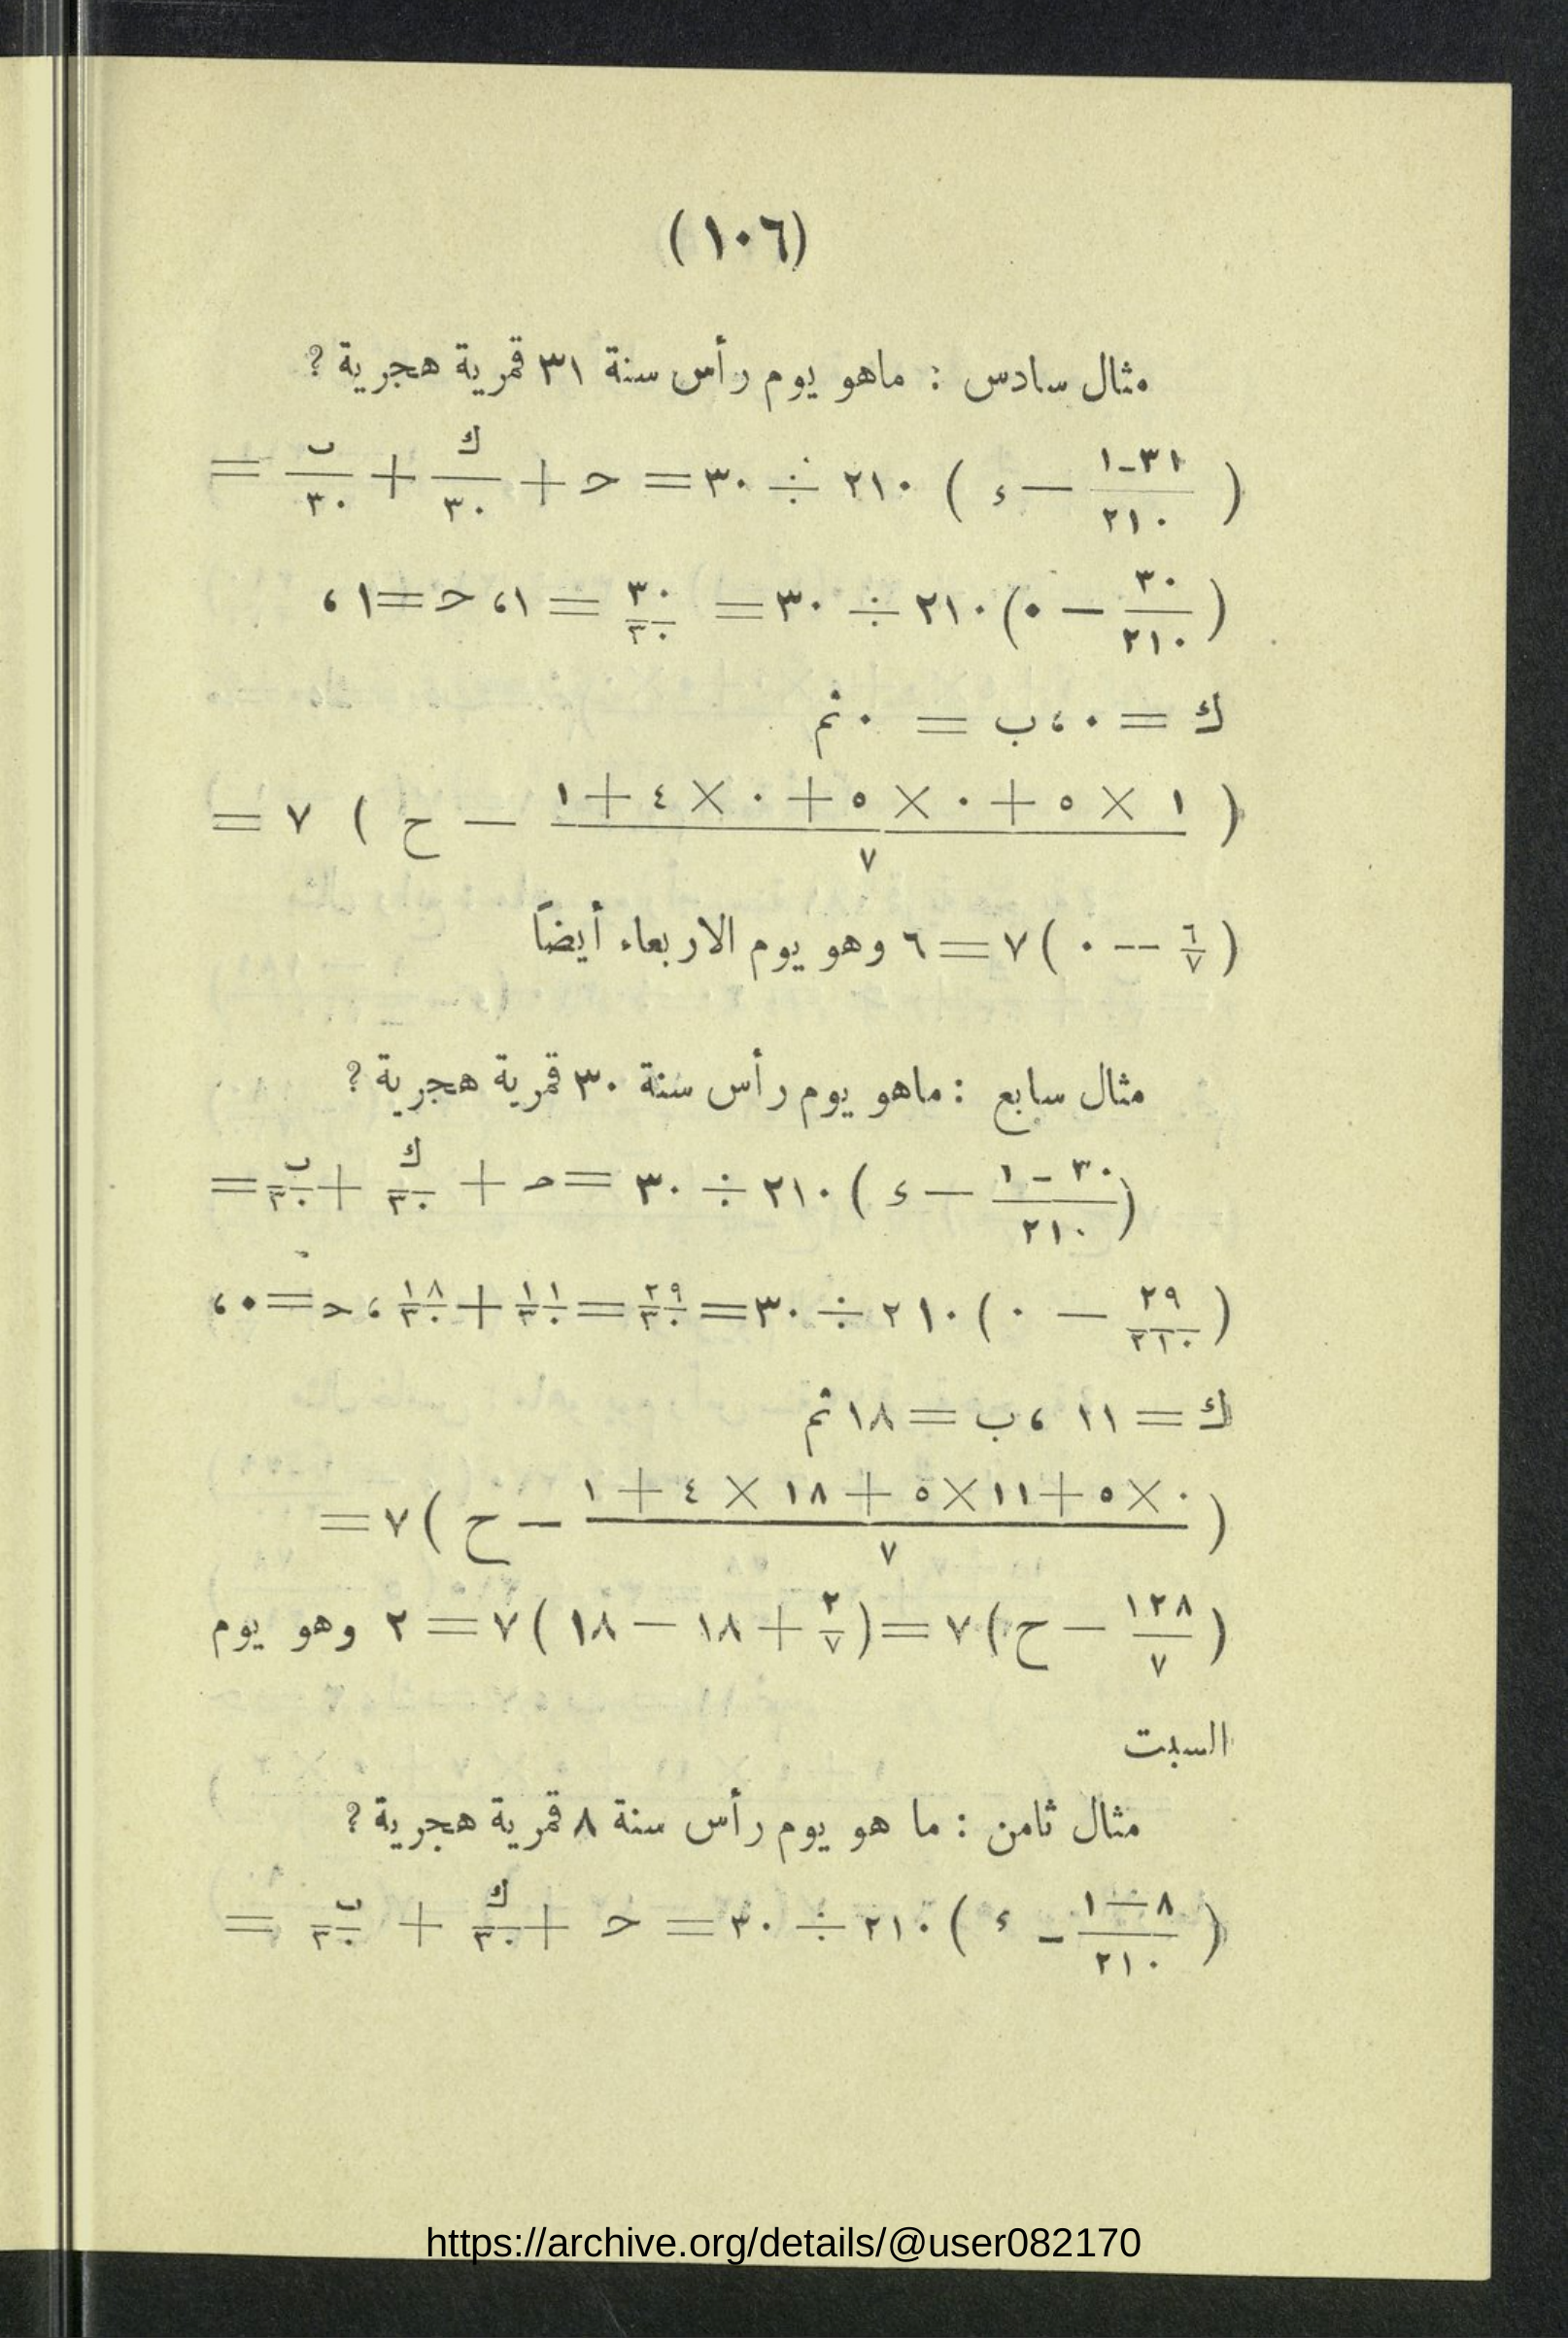 (١٠٦)
مثال سادس : ماهو يوم رأس سنة ٣١ قمرية هجرية ؟
( (٣١-١)/٢١٠ — ء ) ٢١٠ ÷ ٣٠ = حـ + ك/٣٠ + ب/٣٠ =
( ٣٠/٢١٠ — ٠ ) ٢١٠ ÷ ٣٠ = ٣٠/٣٠ = ١، حـ = ١ ،
ك = ٠ ، ب = ٠ ثم
( (١ × ٥ + ٠ × ٥ + ٠ × ٤ + ١)/٧ — ح ) ٧ =
( ٦/٧ -- ٠ ) ٧ = ٦ وهو يوم الاربعاء أيضاً
مثال سابع : ماهو يوم رأس سنة ٣٠ قمرية هجرية ؟
( (٣٠ - ١)/٢١٠ — ء ) ٢١٠ ÷ ٣٠ = حـ + ك/٣٠ + ب/٣٠ =
( ٢٩/٢١٠ — ٠ ) ٢١٠ ÷ ٣٠ = ٢٩/٣٠ = ١١/٣٠ + ١٨/٣٠ ، حـ = ٠ ،
ك = ١١ ، ب = ١٨ ثم
( (٠ × ٥ + ١١ × ٥ + ١٨ × ٤ + ١)/٧ — ح ) ٧ =
( ١٢٨/٧ — ح ) ٧ = ( ٢/٧ + ١٨ — ١٨ ) ٧ = ٢ وهو يوم
السبت
مثال ثامن : ما هو يوم رأس سنة ٨ قمرية هجرية ؟
( (٨ — ١)/٢١٠ - ء ) ٢١٠ ÷ ٣٠ = حـ + ك/٣٠ + ب/٣٠ =
https://archive.org/details/@user082170